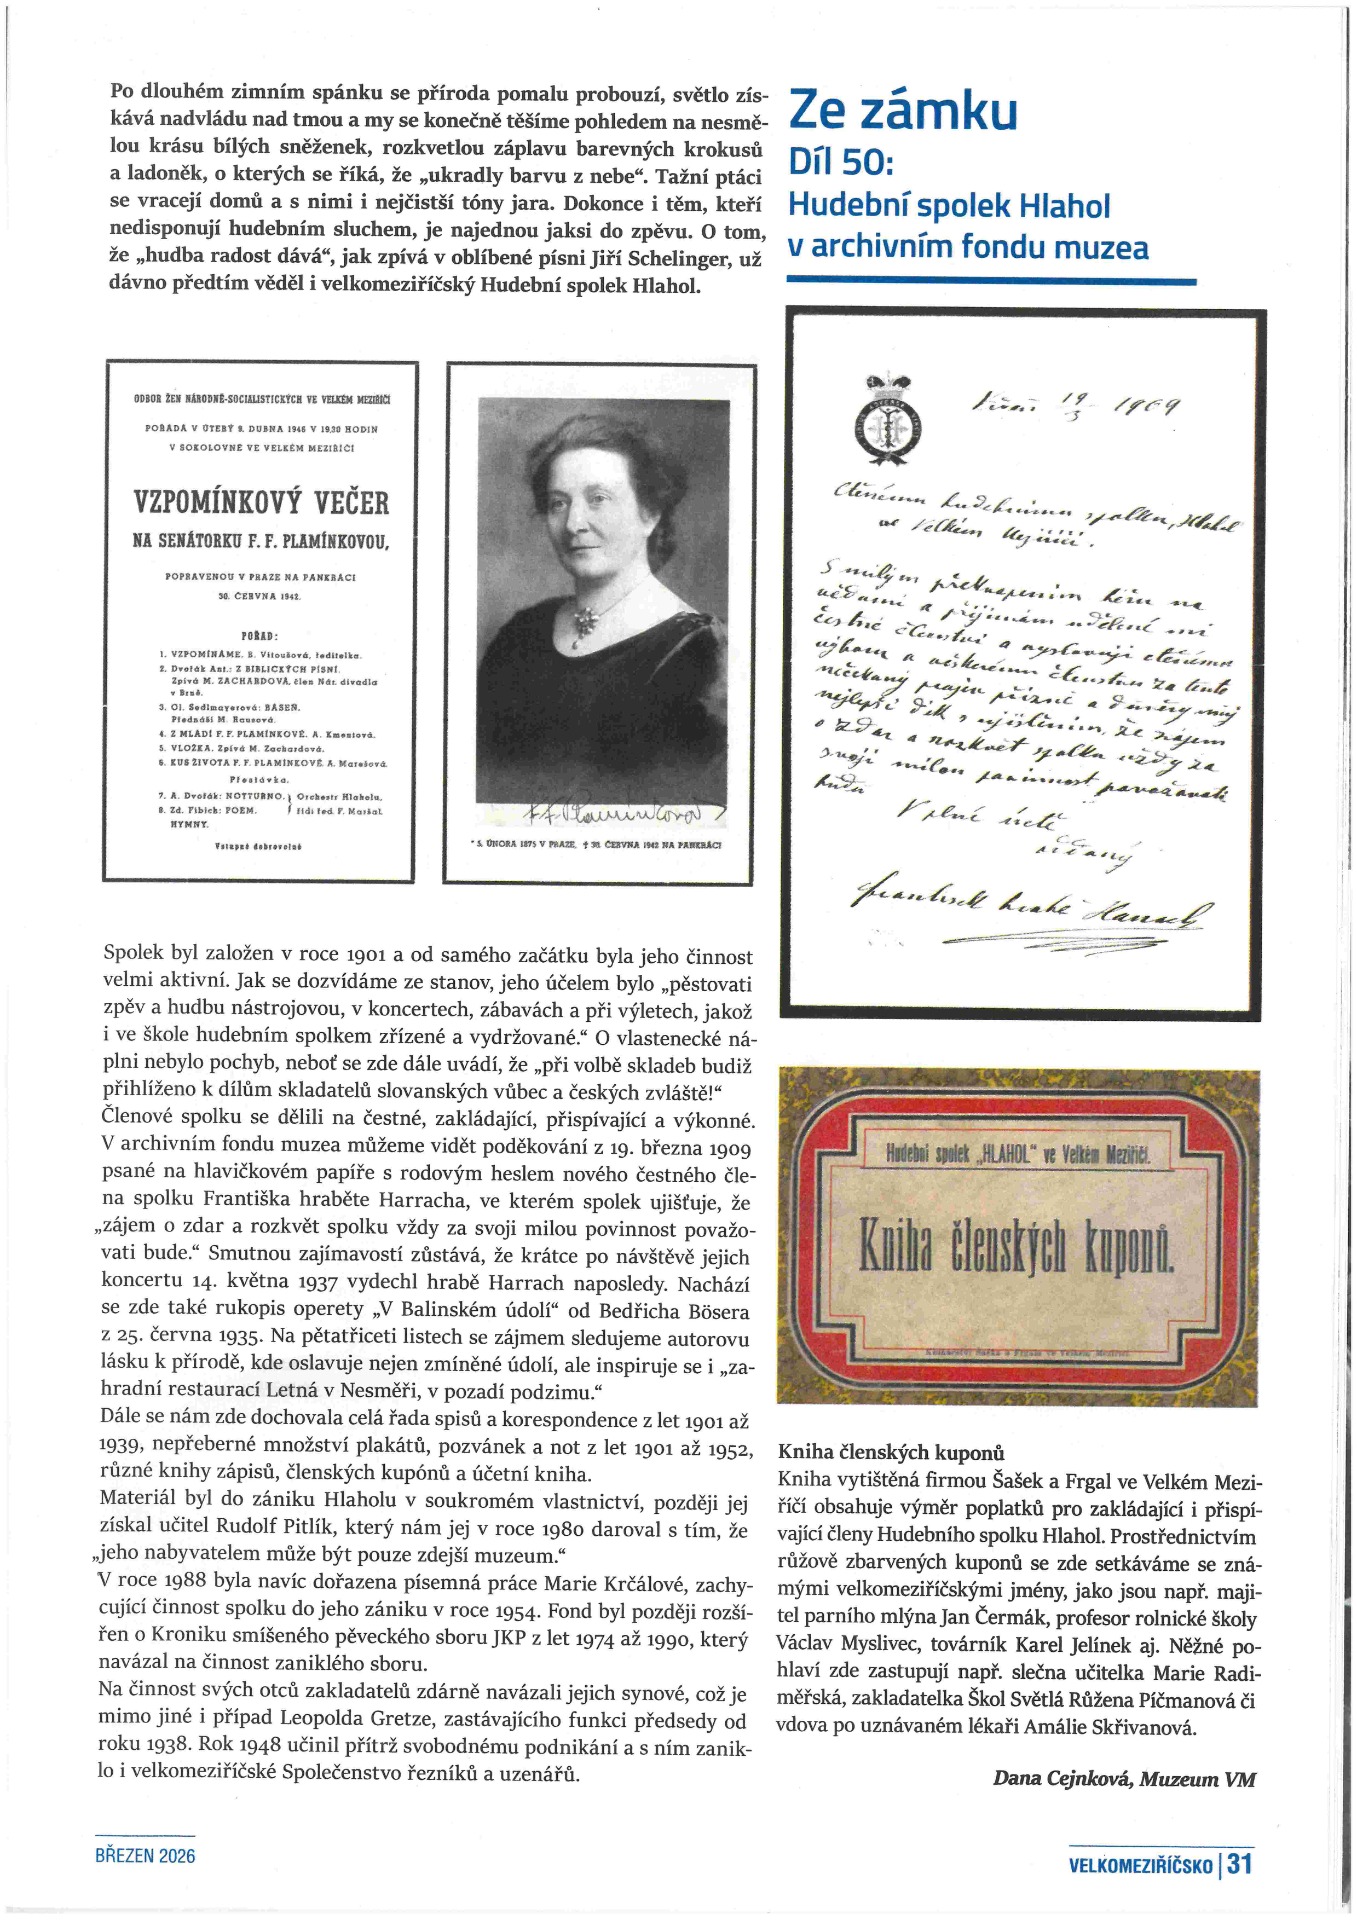 Po dlouhém zimním spánku se příroda pomalu probouzí, světlo zís-
kává nadvládu nad tmou a my se konečně těšíme pohledem na nesmě-
lou krásu bílých sněženek, rozkvetlou záplavu barevných krokusů
a ladoněk, o kterých se říká, že „ukradly barvu z nebe“. Tažní ptáci
se vracejí domů a s nimi i nejčistší tóny jara. Dokonce i těm, kteří
nedisponují hudebním sluchem, je najednou jaksi do zpěvu. O tom,
že „hudba radost dává“, jak zpívá v oblíbené písni Jiří Schelinger, už
dávno předtím věděl i velkomeziříčský Hudební spolek Hlahol.
Ze zámku
Díl 50:
Hudební spolek Hlahol
v archivním fondu muzea
ODBOR ŽEN NÁRODNĚ-SOCIALISTICKÝCH VE VELKÉM MEZIŘÍČÍ
POŘÁDÁ V ÚTERÝ 9. DUBNA 1946 V 19,30 HODIN
V SOKOLOVNĚ VE VELKÉM MEZIŘÍČÍ
VZPOMÍNKOVÝ VEČER
NA SENÁTORKU F. F. PLAMÍNKOVOU,
POPRAVENOU V PRAZE NA PANKRÁCI
30. ČERVNA 1942.
POŘAD:
1. VZPOMÍNÁME. B. Vitoušová, ředitelka.
2. Dvořák Ant.: Z BIBLICKÝCH PÍSNÍ.
Zpívá M. ZACHARDOVÁ, člen Nár. divadla
v Brně.
3. Ol. Sedlmayerová: BÁSEŇ.
Přednáší M. Rausová.
4. Z MLÁDÍ F. F. PLAMÍNKOVÉ. A. Kmentová.
5. VLOŽKA. Zpívá M. Zachardová.
6. KUS ŽIVOTA F. F. PLAMÍNKOVÉ. A. Marešová.
Přestávka.
7. A. Dvořák: NOTTURNO. } Orchestr Hlaholu,
8. Zd. Fibich: POEM. } řídí řed. F. Maršal.
HYMNY.
Vstupné dobrovolné
F. F. Plamínková
* 5. ÚNORA 1875 V PRAZE. † 30. ČERVNA 1942 NA PANKRÁCI
19/3 1909
Ctěnému hudebnímu spolku „Hlahol
ve Velkém Meziříčí.
S milým překvapením beru na
vědomí a přijímám udělené mi
čestné členství a vyslovuji ctěnému
výboru a veškerému členstvu za tento
nečekaný projev přízně a důvěry můj
nejlepší dík s ujištěním, že zájem
o zdar a rozkvět spolku vždy za
svoji milou povinnost považovati
budu
V plné úctě
oddaný
František hrabě Harrach
Spolek byl založen v roce 1901 a od samého začátku byla jeho činnost
velmi aktivní. Jak se dozvídáme ze stanov, jeho účelem bylo „pěstovati
zpěv a hudbu nástrojovou, v koncertech, zábavách a při výletech, jakož
i ve škole hudebním spolkem zřízené a vydržované.“ O vlastenecké ná-
plni nebylo pochyb, neboť se zde dále uvádí, že „při volbě skladeb budiž
přihlíženo k dílům skladatelů slovanských vůbec a českých zvláště!“
Členové spolku se dělili na čestné, zakládající, přispívající a výkonné.
V archivním fondu muzea můžeme vidět poděkování z 19. března 1909
psané na hlavičkovém papíře s rodovým heslem nového čestného čle-
na spolku Františka hraběte Harracha, ve kterém spolek ujišťuje, že
„zájem o zdar a rozkvět spolku vždy za svoji milou povinnost považo-
vati bude.“ Smutnou zajímavostí zůstává, že krátce po návštěvě jejich
koncertu 14. května 1937 vydechl hrabě Harrach naposledy. Nachází
se zde také rukopis operety „V Balinském údolí“ od Bedřicha Bösera
z 25. června 1935. Na pětatřiceti listech se zájmem sledujeme autorovu
lásku k přírodě, kde oslavuje nejen zmíněné údolí, ale inspiruje se i „za-
hradní restaurací Letná v Nesměři, v pozadí podzimu.“
Dále se nám zde dochovala celá řada spisů a korespondence z let 1901 až
1939, nepřeberné množství plakátů, pozvánek a not z let 1901 až 1952,
různé knihy zápisů, členských kupónů a účetní kniha.
Materiál byl do zániku Hlaholu v soukromém vlastnictví, později jej
získal učitel Rudolf Pitlík, který nám jej v roce 1980 daroval s tím, že
„jeho nabyvatelem může být pouze zdejší muzeum.“
V roce 1988 byla navíc dořazena písemná práce Marie Krčálové, zachy-
cující činnost spolku do jeho zániku v roce 1954. Fond byl později rozší-
řen o Kroniku smíšeného pěveckého sboru JKP z let 1974 až 1990, který
navázal na činnost zaniklého sboru.
Na činnost svých otců zakladatelů zdárně navázali jejich synové, což je
mimo jiné i případ Leopolda Gretze, zastávajícího funkci předsedy od
roku 1938. Rok 1948 učinil přítrž svobodnému podnikání a s ním zanik-
lo i velkomeziříčské Společenstvo řezníků a uzenářů.
Hudební spolek „HLAHOL“ ve Velkém Meziříčí.
Kniha členských kuponů.
Knihařství Šašek a Frgal ve Velkém Meziříčí.
Kniha členských kuponů
Kniha vytištěná firmou Šašek a Frgal ve Velkém Mezi-
říčí obsahuje výměr poplatků pro zakládající i přispí-
vající členy Hudebního spolku Hlahol. Prostřednictvím
růžově zbarvených kuponů se zde setkáváme se zná-
mými velkomeziříčskými jmény, jako jsou např. maji-
tel parního mlýna Jan Čermák, profesor rolnické školy
Václav Myslivec, továrník Karel Jelínek aj. Něžné po-
hlaví zde zastupují např. slečna učitelka Marie Radi-
měřská, zakladatelka Škol Světlá Růžena Píčmanová či
vdova po uznávaném lékaři Amálie Skřivanová.
Dana Cejnková, Muzeum VM
BŘEZEN 2026
VELKOMEZIŘÍČSKO | 31